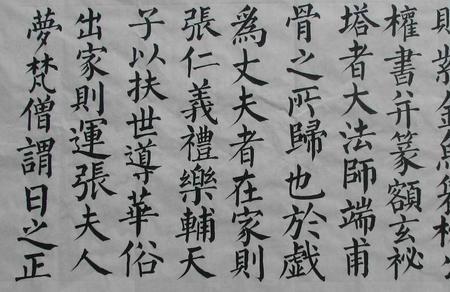 紫金魚袋柳公
權書并篆額玄祕
塔者大法師端甫
骨之所歸也於戲
爲丈夫者在家則
張仁義禮樂輔天
子以扶世導華俗
出家則運張夫人
夢梵僧謂曰之正